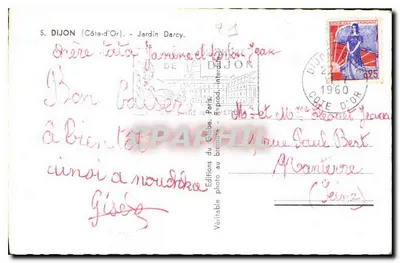 5. DIJON (Côte-d'Or). - Jardin Darcy.
chère tata Janine et tonton Jean
Bon baiser
à bientôt
ainsi a nouchka
Gisèle
Éditions du Cygne, Paris.
Véritable photo au bromure - Reprod. interdite
DE
DIJON
DIJON
1960
COTE D'OR
0,25
M. et Mme Jean
rue Paul Bert
Nanterre
(Seine)